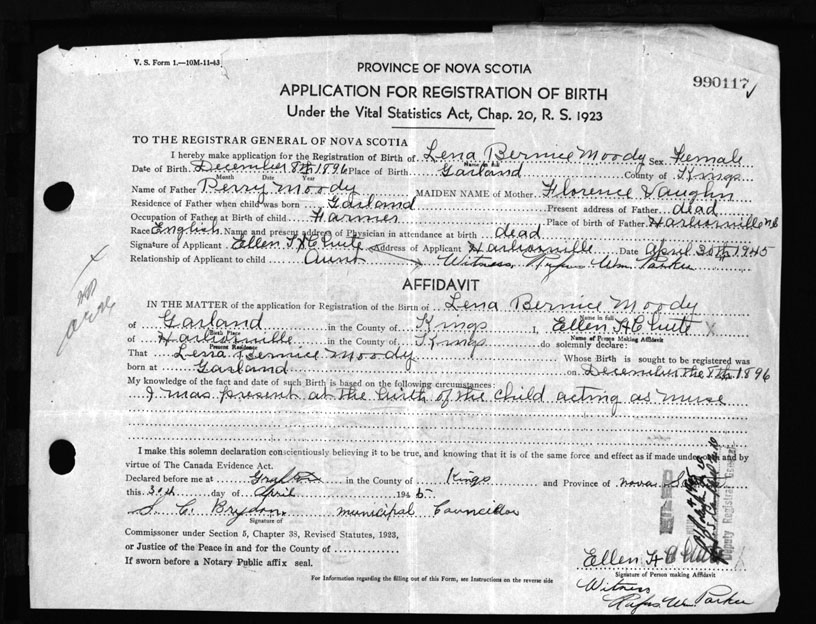 V. S. Form 1.—10M-11-43
PROVINCE OF NOVA SCOTIA
990117
APPLICATION FOR REGISTRATION OF BIRTH
Under the Vital Statistics Act, Chap. 20, R. S. 1923
TO THE REGISTRAR GENERAL OF NOVA SCOTIA
I hereby make application for the Registration of Birth of Lena Bernice Moody Sex Female
Name in full
Date of Birth December 8th 1896 Place of Birth Garland County of Kings
Month Date Year
Name of Father Berry Moody MAIDEN NAME of Mother Florence Vaughn
Residence of Father when child was born Garland Present address of Father dead
Occupation of Father at Birth of child Farmer Place of birth of Father Harborville NS
Race English Name and present address of Physician in attendance at birth dead
Signature of Applicant Ellen H C Tuite Address of Applicant Harborville Date April 30th 1945
Relationship of Applicant to child Aunt Witness, Rufus Wm. Parker
AFFIDAVIT
IN THE MATTER of the application for Registration of the Birth of Lena Bernice Moody
Name in full
of Garland in the County of Kings I, Ellen H C Tuite X
Birth Place Name of Person Making Affidavit
of Harborville in the County of Kings do solemnly declare:
Present Residence
That Lena Bernice Moody Whose Birth is sought to be registered was
born at Garland on December the 8th 1896
My knowledge of the fact and date of such Birth is based on the following circumstances:
I was present at the birth of the child acting as nurse
I make this solemn declaration conscientiously believing it to be true, and knowing that it is of the same force and effect as if made under oath and by
virtue of The Canada Evidence Act.
Declared before me at Grafton in the County of Kings and Province of Nova Scotia
this 30th day of April 1945.
S. C. Brydon, municipal Councillor
Signature of
Commissioner under Section 5, Chapter 38, Revised Statutes, 1923,
or Justice of the Peace in and for the County of
If sworn before a Notary Public affix seal.
Deputy Registrar General
Ellen H C Tuite X
Signature of Person making Affidavit
For Information regarding the filling out of this Form, see Instructions on the reverse side
Witness
Rufus Wm. Parker